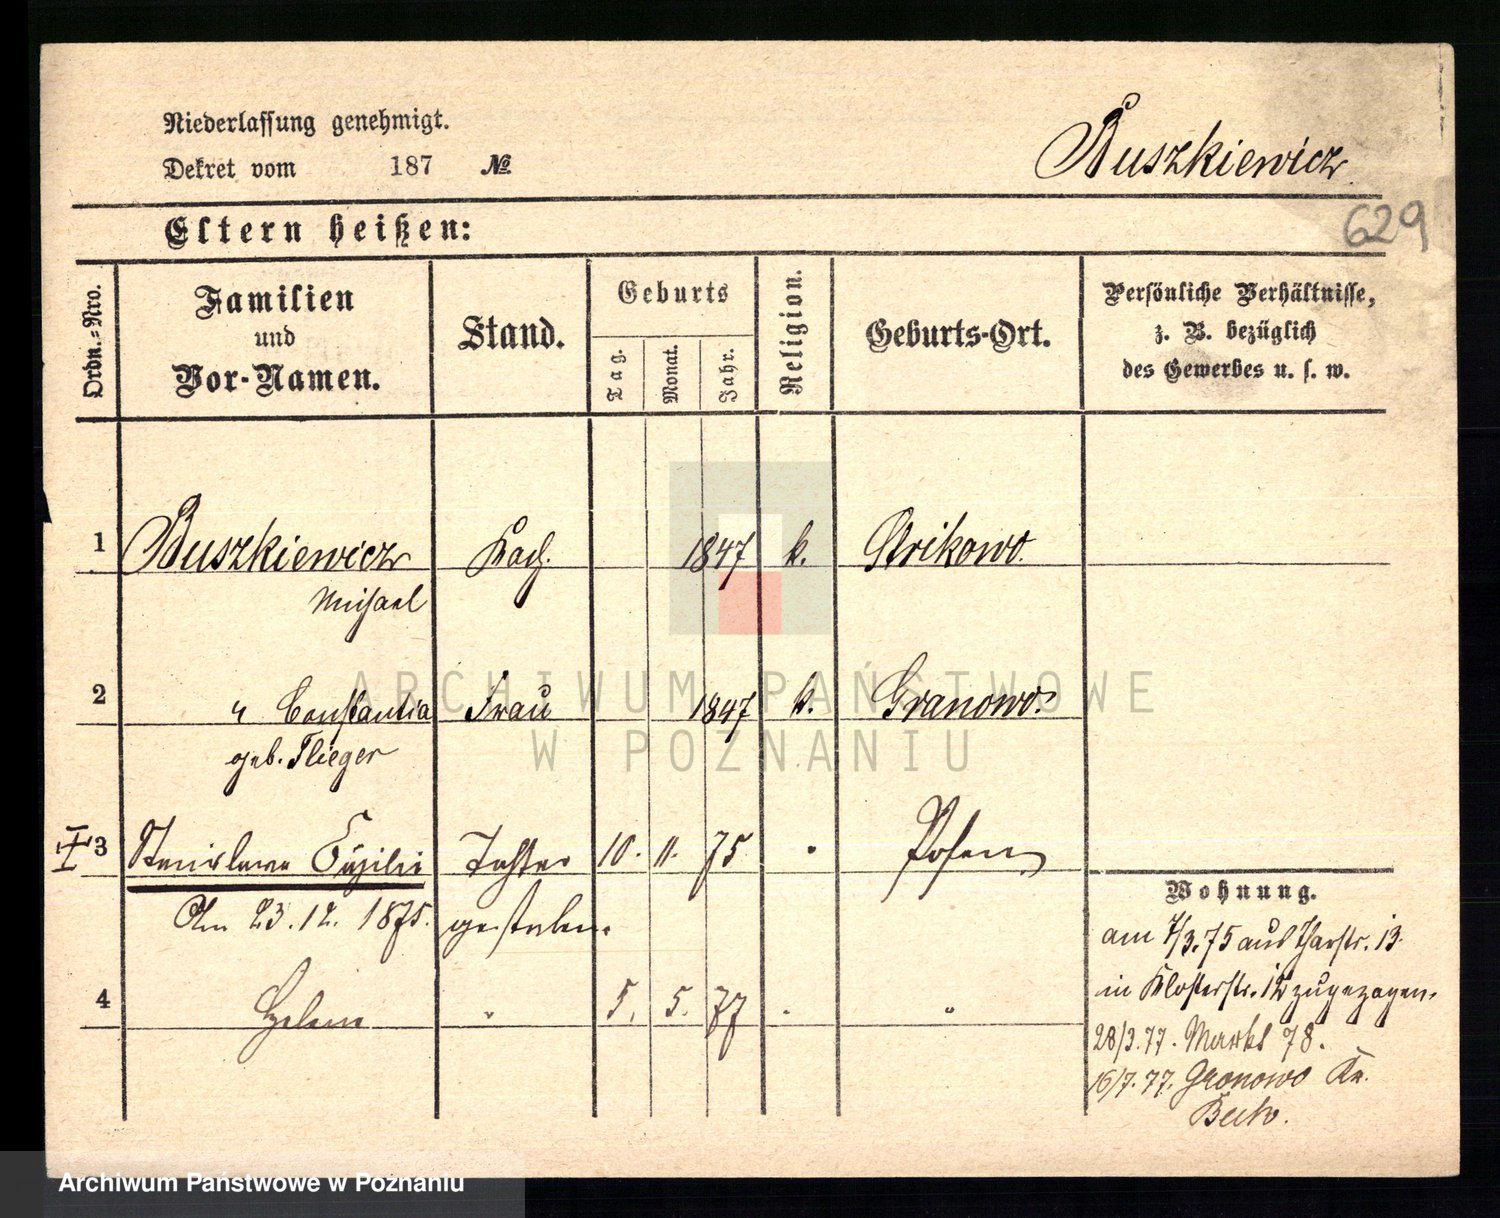 Niederlassung genehmigt.
Dekret vom 187 №
Buszkiewicz
629
Eltern heißen:
Ordn.-Nro.
Familien
und
Vor-Namen.
Stand.
Geburts
Tag.
Monat.
Jahr.
Religion.
Geburts-Ort.
Persönliche Verhältnisse,
z. B. bezüglich
des Gewerbes u. s. w.
1 Buszkiewicz Koch. 1847 k. Strikowo.
Michael
2 " Constantia Frau 1847 k. Granowo.
geb. Flieger
3 Stanislawa Tochter 10. 11. 75 Posen
Am 23. 12. 1875. gestorben.
4 Helene " 5. 5. 77 "
Wohnung.
am 7/3.75 aus Thorstr. 13.
in Klosterstr. 12 zugezogen.
28/3.77. Markt 78.
16/7.77. Granowo Kr.
Buk.
ARCHIWUM PAŃSTWOWE
W POZNANIU
Archiwum Państwowe w Poznaniu